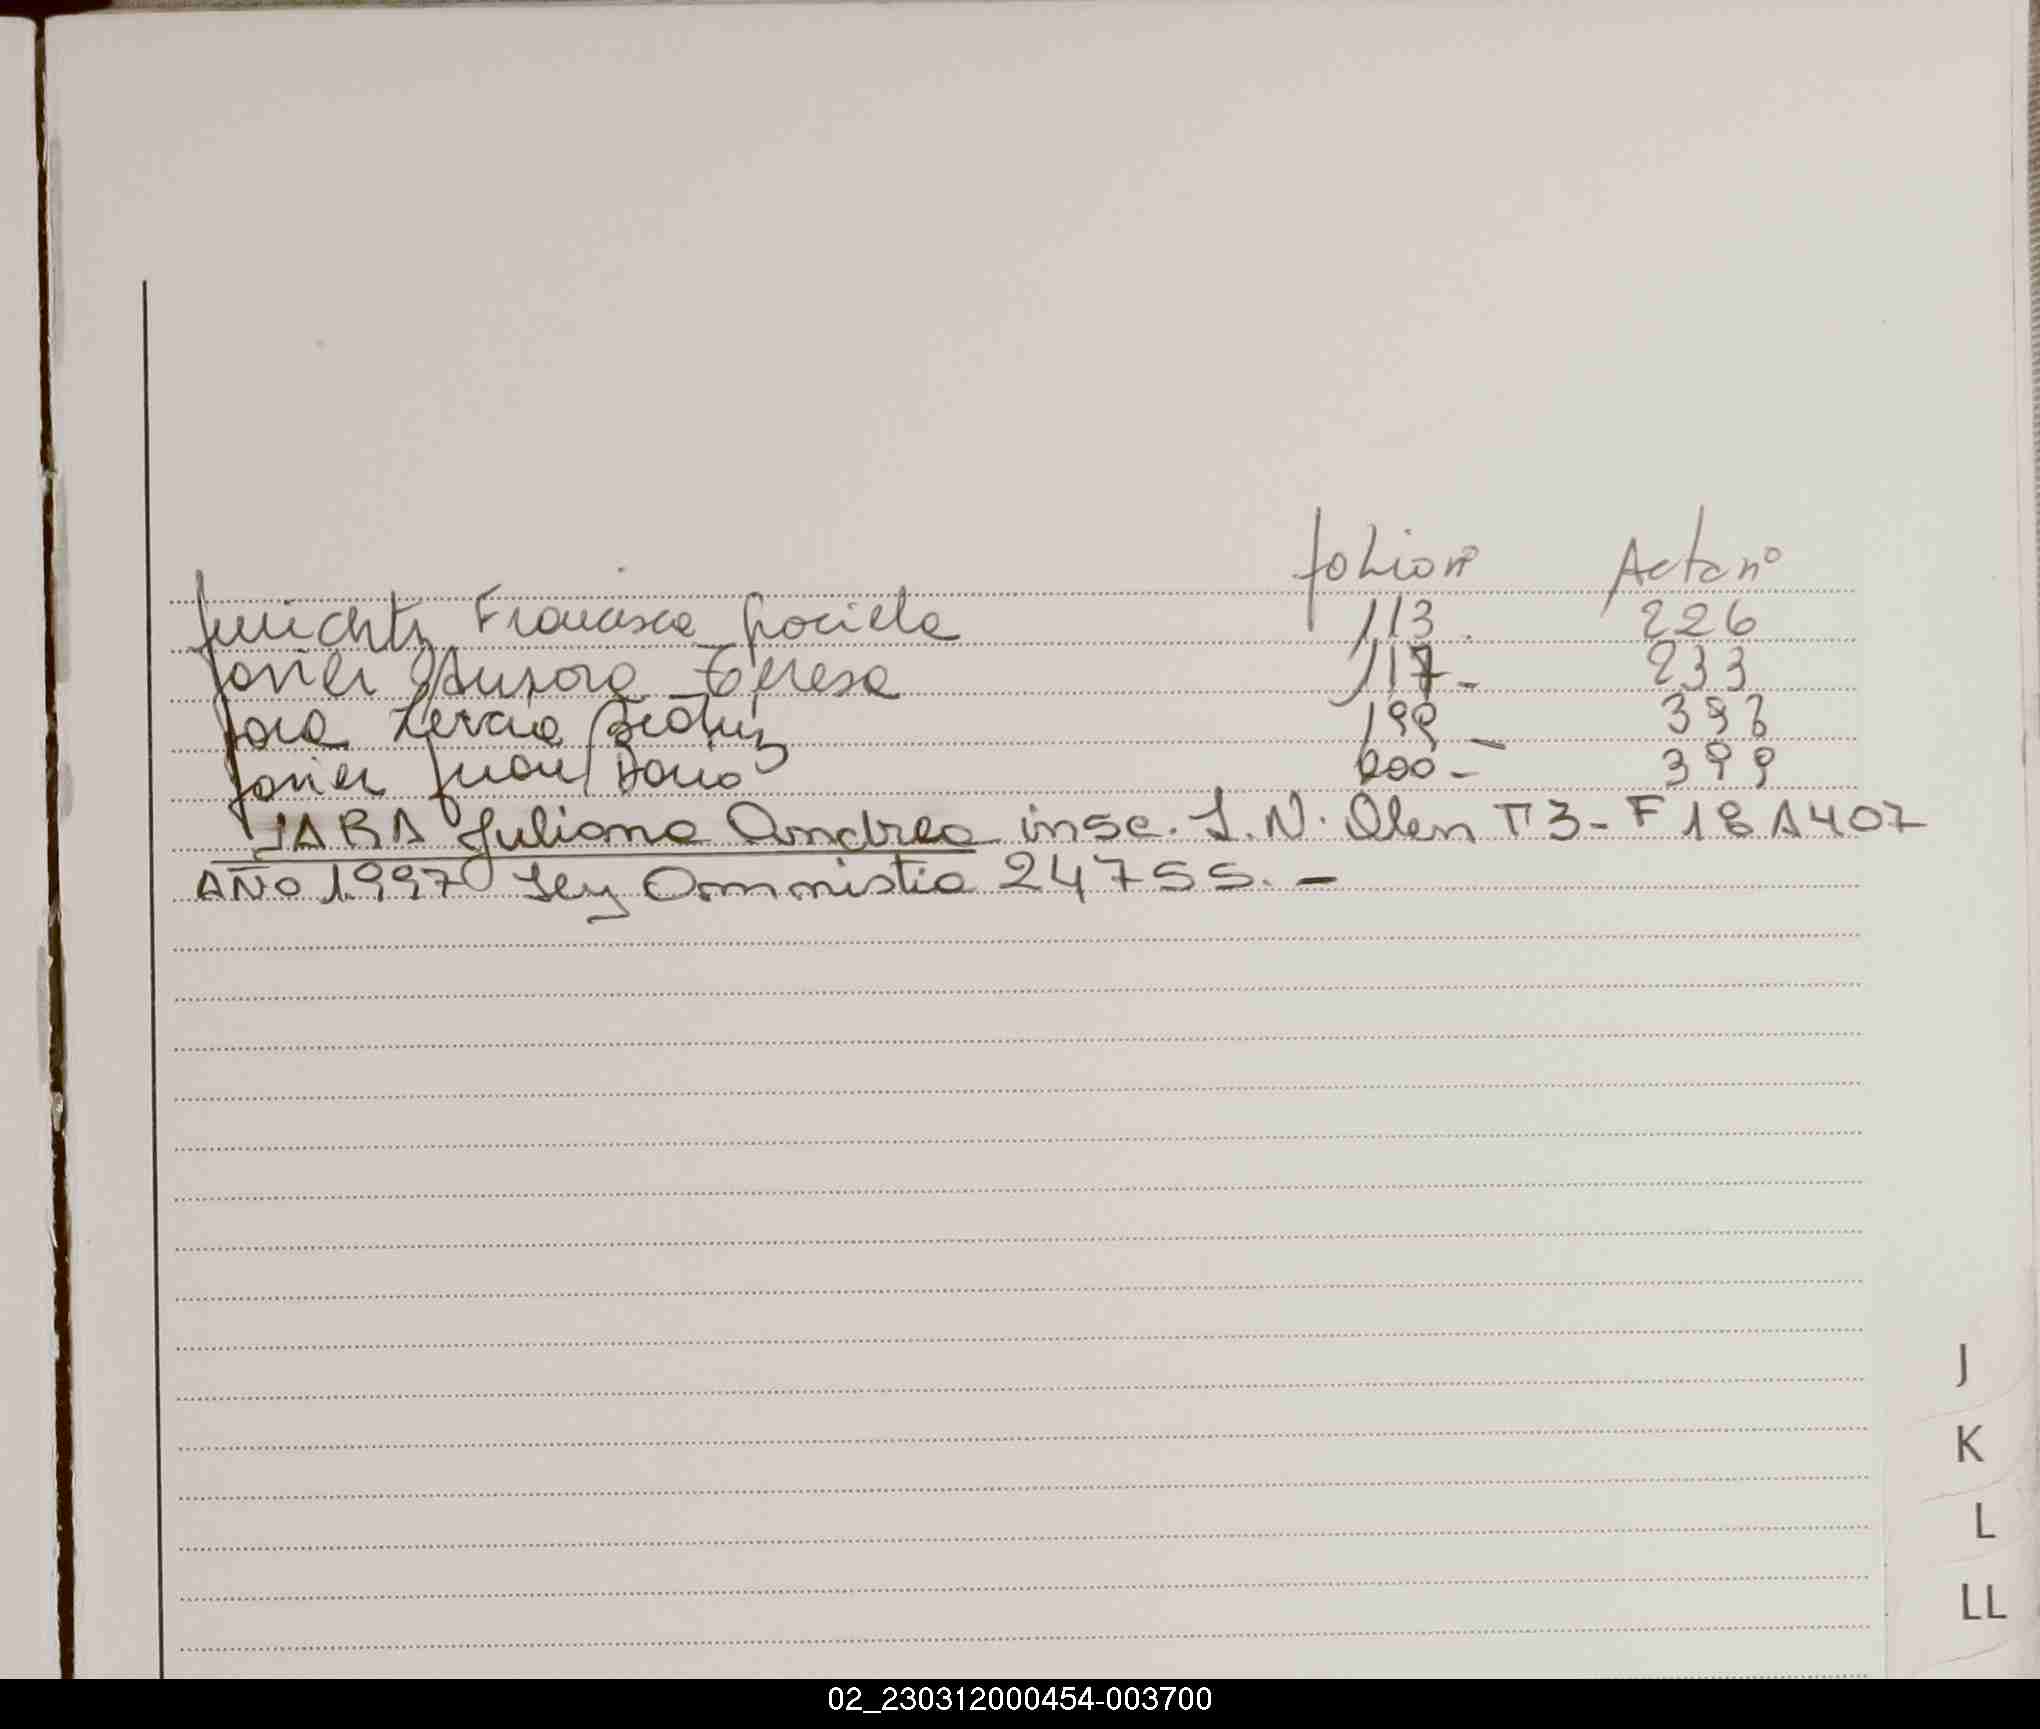 folio nº Acta nº
Francisca Graciela 113. 226
Javier Aurora Teresa 117- 233
Jara Beatriz 199 - 393
Javier Juan Dario 200 - 399
JARA Juliana Andrea insc. L.N. Alem T3- F 18 A 407
AÑO 1.997 Ley Ammistia 24755. -
J
K
L
LL
02_230312000454-003700